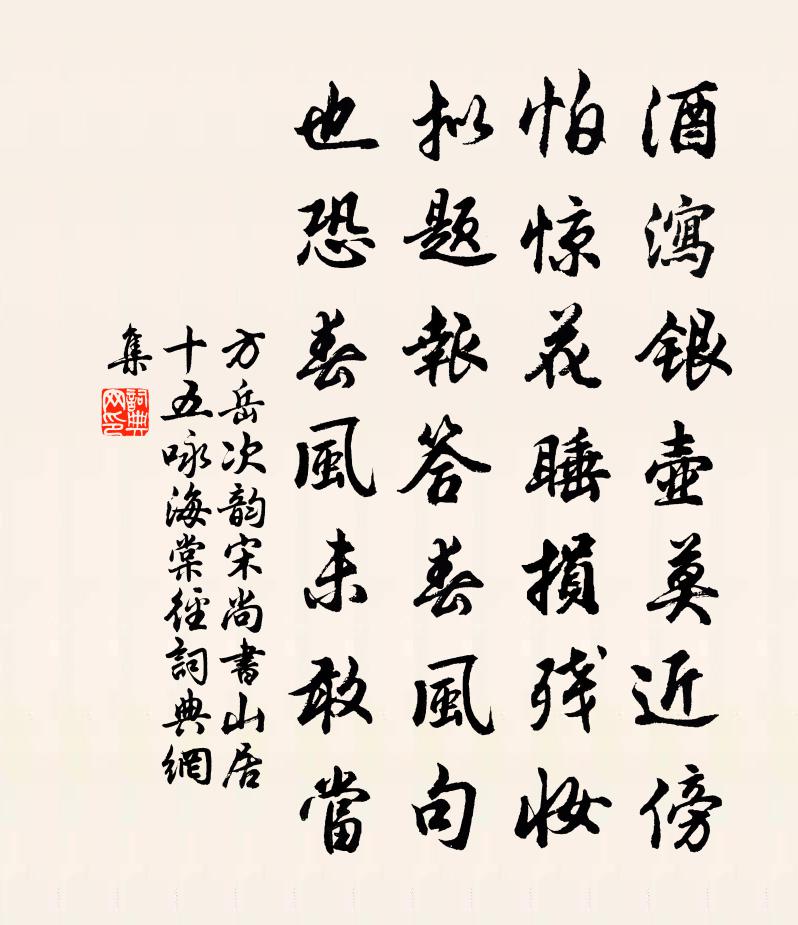 酒瀉银壺莫近傍
怕惊花睡損残妆
拟题報答春風句
也恐春風未敢當
方岳次韵宋尚書山居
十五咏海棠徑詞典網
集
詞典
网印